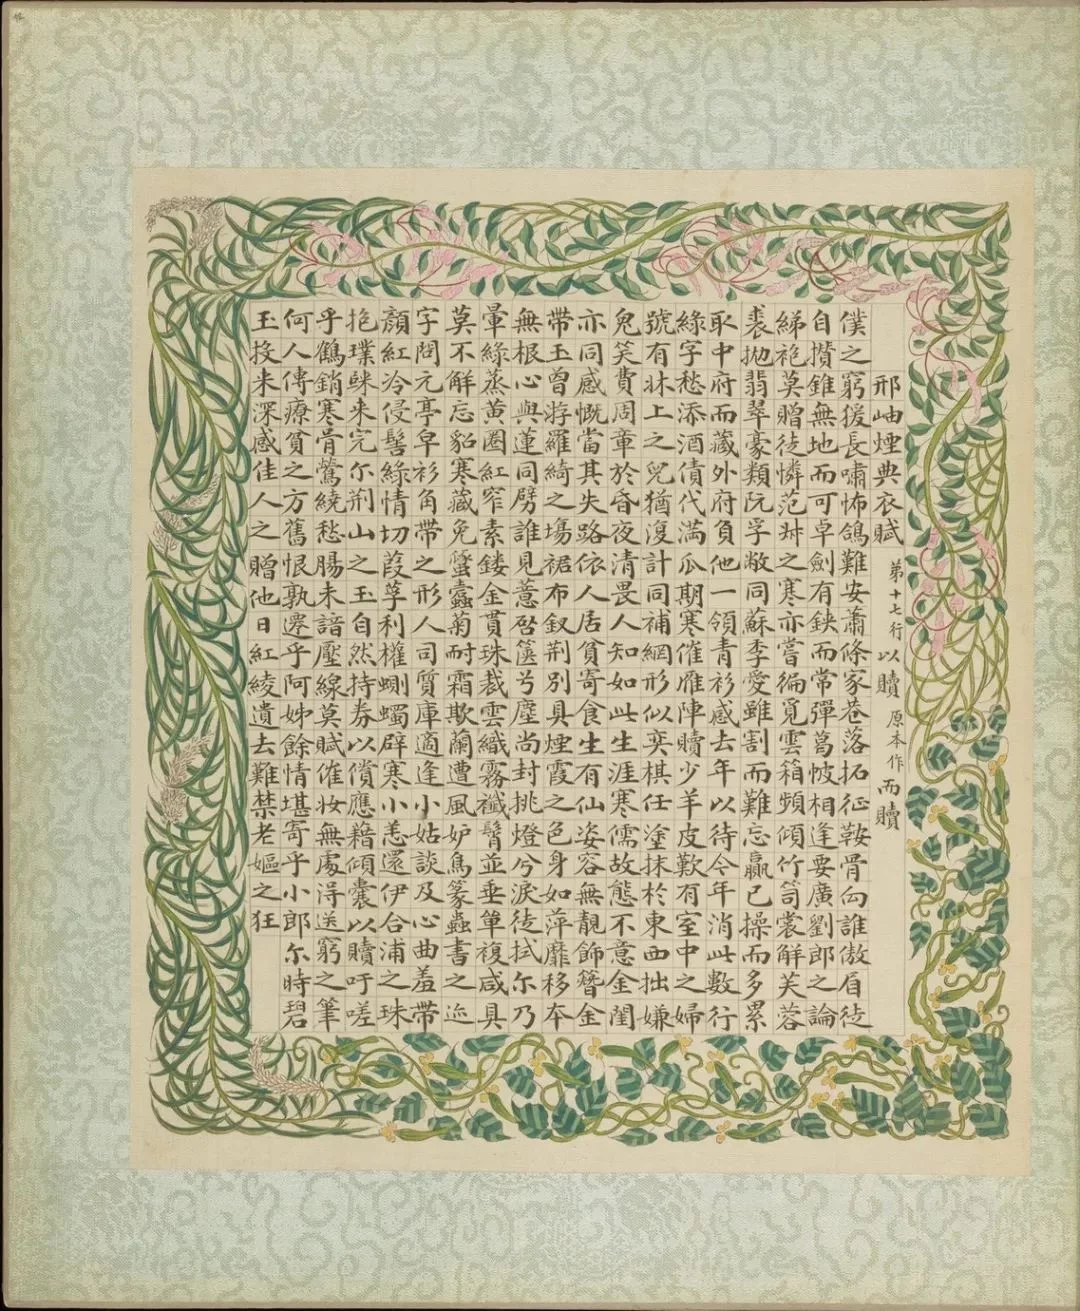 邢岫煙典衣賦 第十七行以贖 原本作而贖
僕之窮猨長嘯怖鴿難安蕭條家巷落拓征鞍骨勾誰傲眉徒
自攢錐無地而可卓劍有鋏而常彈葛帔相逢要廣劉郎之論
綈袍莫贈徒憐范叔之寒亦嘗徧覓雲箱頻傾竹笥裳解芙蓉
裘拋翡翠豪類阮孚敝同蘇季愛雖割而難忘贏已操而多累
取中府而藏外府負他一領青衫感去年以待今年消此數行
綠字愁添酒債代滿瓜期寒催雁陣贖少羊皮歎有室中之婦
號有牀上之兒猶復計同補網形似奕棋任塗抹於東西拙嫌
兒笑費周章於昏夜清畏人知如此生涯寒儒故態不意金閨
亦同感慨當其失路依人居貧寄食生有仙姿容無靚飾簪金
帶玉曾游羅綺之場裙布釵荊別具煙霞之色身如萍靡移本
無根心與蓮同劈誰見薏啟篋兮塵尚封挑燈兮淚徒拭尓乃
暈綠蒸黃圈紅窄素鏤金貫珠裁雲織霧襳髾並垂單複咸具
莫不解忘貂寒藏免蠁蠹菊耐霜欺蘭遭風妒鳥篆蟲書之迹
字問元亭皁衫角帶之形人司質庫適逢小姑談及心曲羞帶
顏紅冷侵髻綠情切葭莩利權蝍蠋辟寒小恙還伊合浦之珠
抱璞睞來完尓荊山之玉自然持券以償應藉傾囊以贖吁嗟
乎鶴銷寒骨鶯繞愁腸未諳壓線莫賦催妝無處淂送窮之筆
何人傳療貧之方舊恨孰遷乎阿姊餘情堪寄乎小郎尓時碧
玉投來深感佳人之贈他日紅綾遺去難禁老嫗之狂